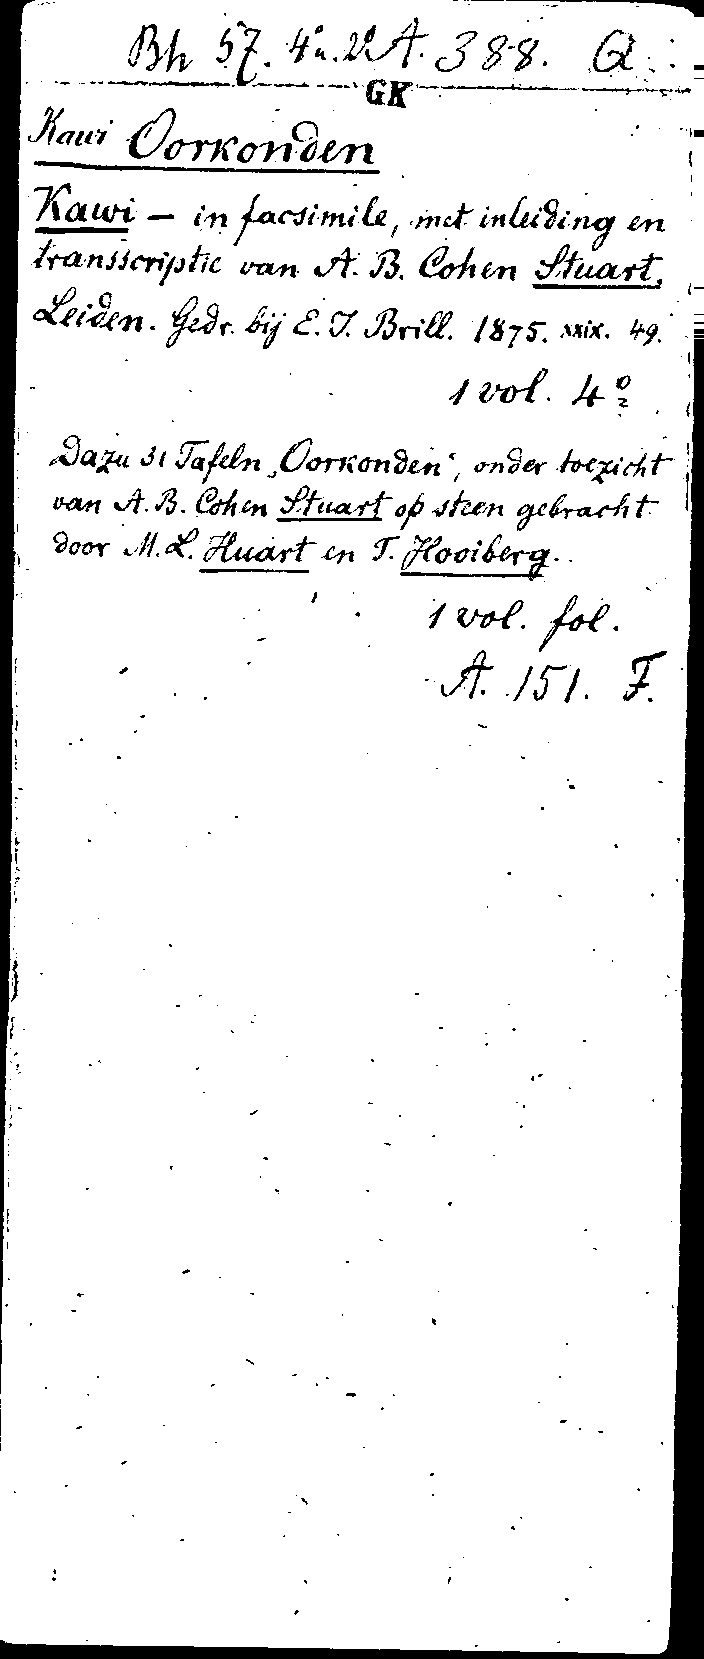 Bh 57. 4° u. 2° A. 388. Q.
GK
Kawi Oorkonden
Kawi — in facsimile, met inleiding en
transscriptie van A. B. Cohen Stuart,
Leiden. Gedr. bij E. J. Brill. 1875. XXIX. 49.
1 vol. 4°
Dazu 31 Tafeln „Oorkonden“, onder toezicht
van A. B. Cohen Stuart op steen gebracht
door M. L. Huart en T. Hooiberg.
1 vol. fol.
A. 151. F.